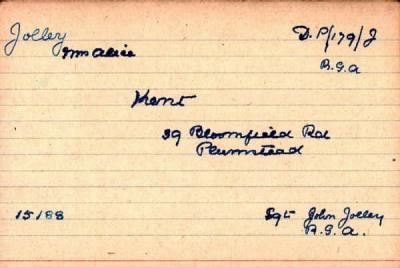 Jolley D.P/179/J
Mrs Alice R.G.A
Kent
39 Bloomfield Rd
Plumstead
15188 Sgt John Jolley
R.G.A.